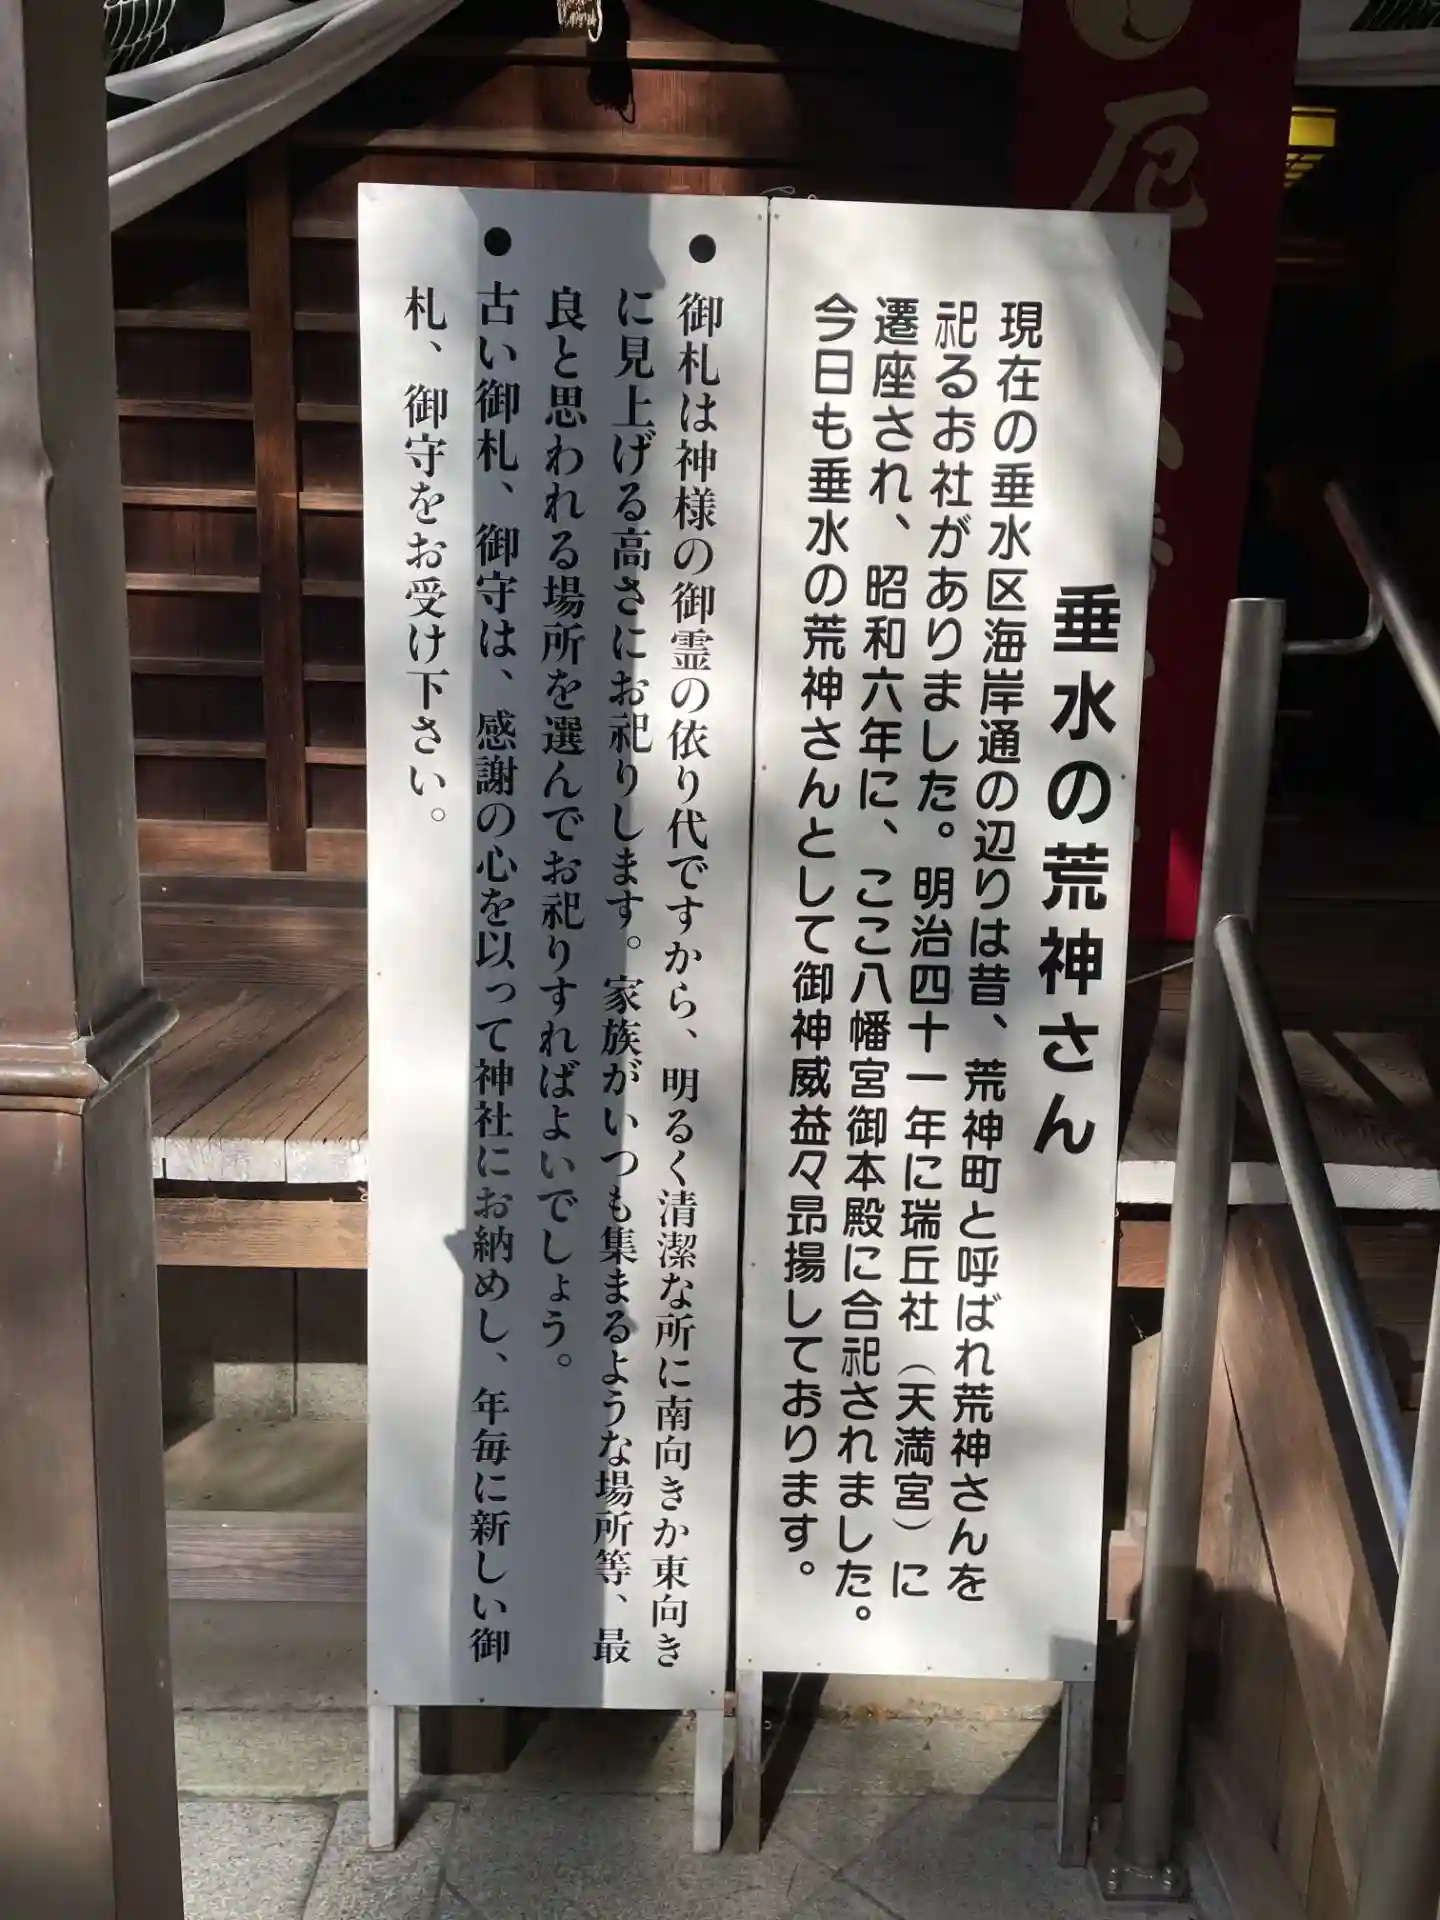 垂水の荒神さん
現在の垂水区海岸通の辺りは昔、荒神町と呼ばれ荒神さんを
祀るお社がありました。明治四十一年に瑞丘社（天満宮）に
遷座され、昭和六年に、ここ八幡宮御本殿に合祀されました。
今日も垂水の荒神さんとして御神威益々昂揚しております。
●御札は神様の御霊の依り代ですから、明るく清潔な所に南向きか東向き
に見上げる高さにお祀りします。家族がいつも集まるような場所等、最
良と思われる場所を選んでお祀りすればよいでしょう。
●古い御札、御守は、感謝の心を以って神社にお納めし、年毎に新しい御
札、御守をお受け下さい。
厄